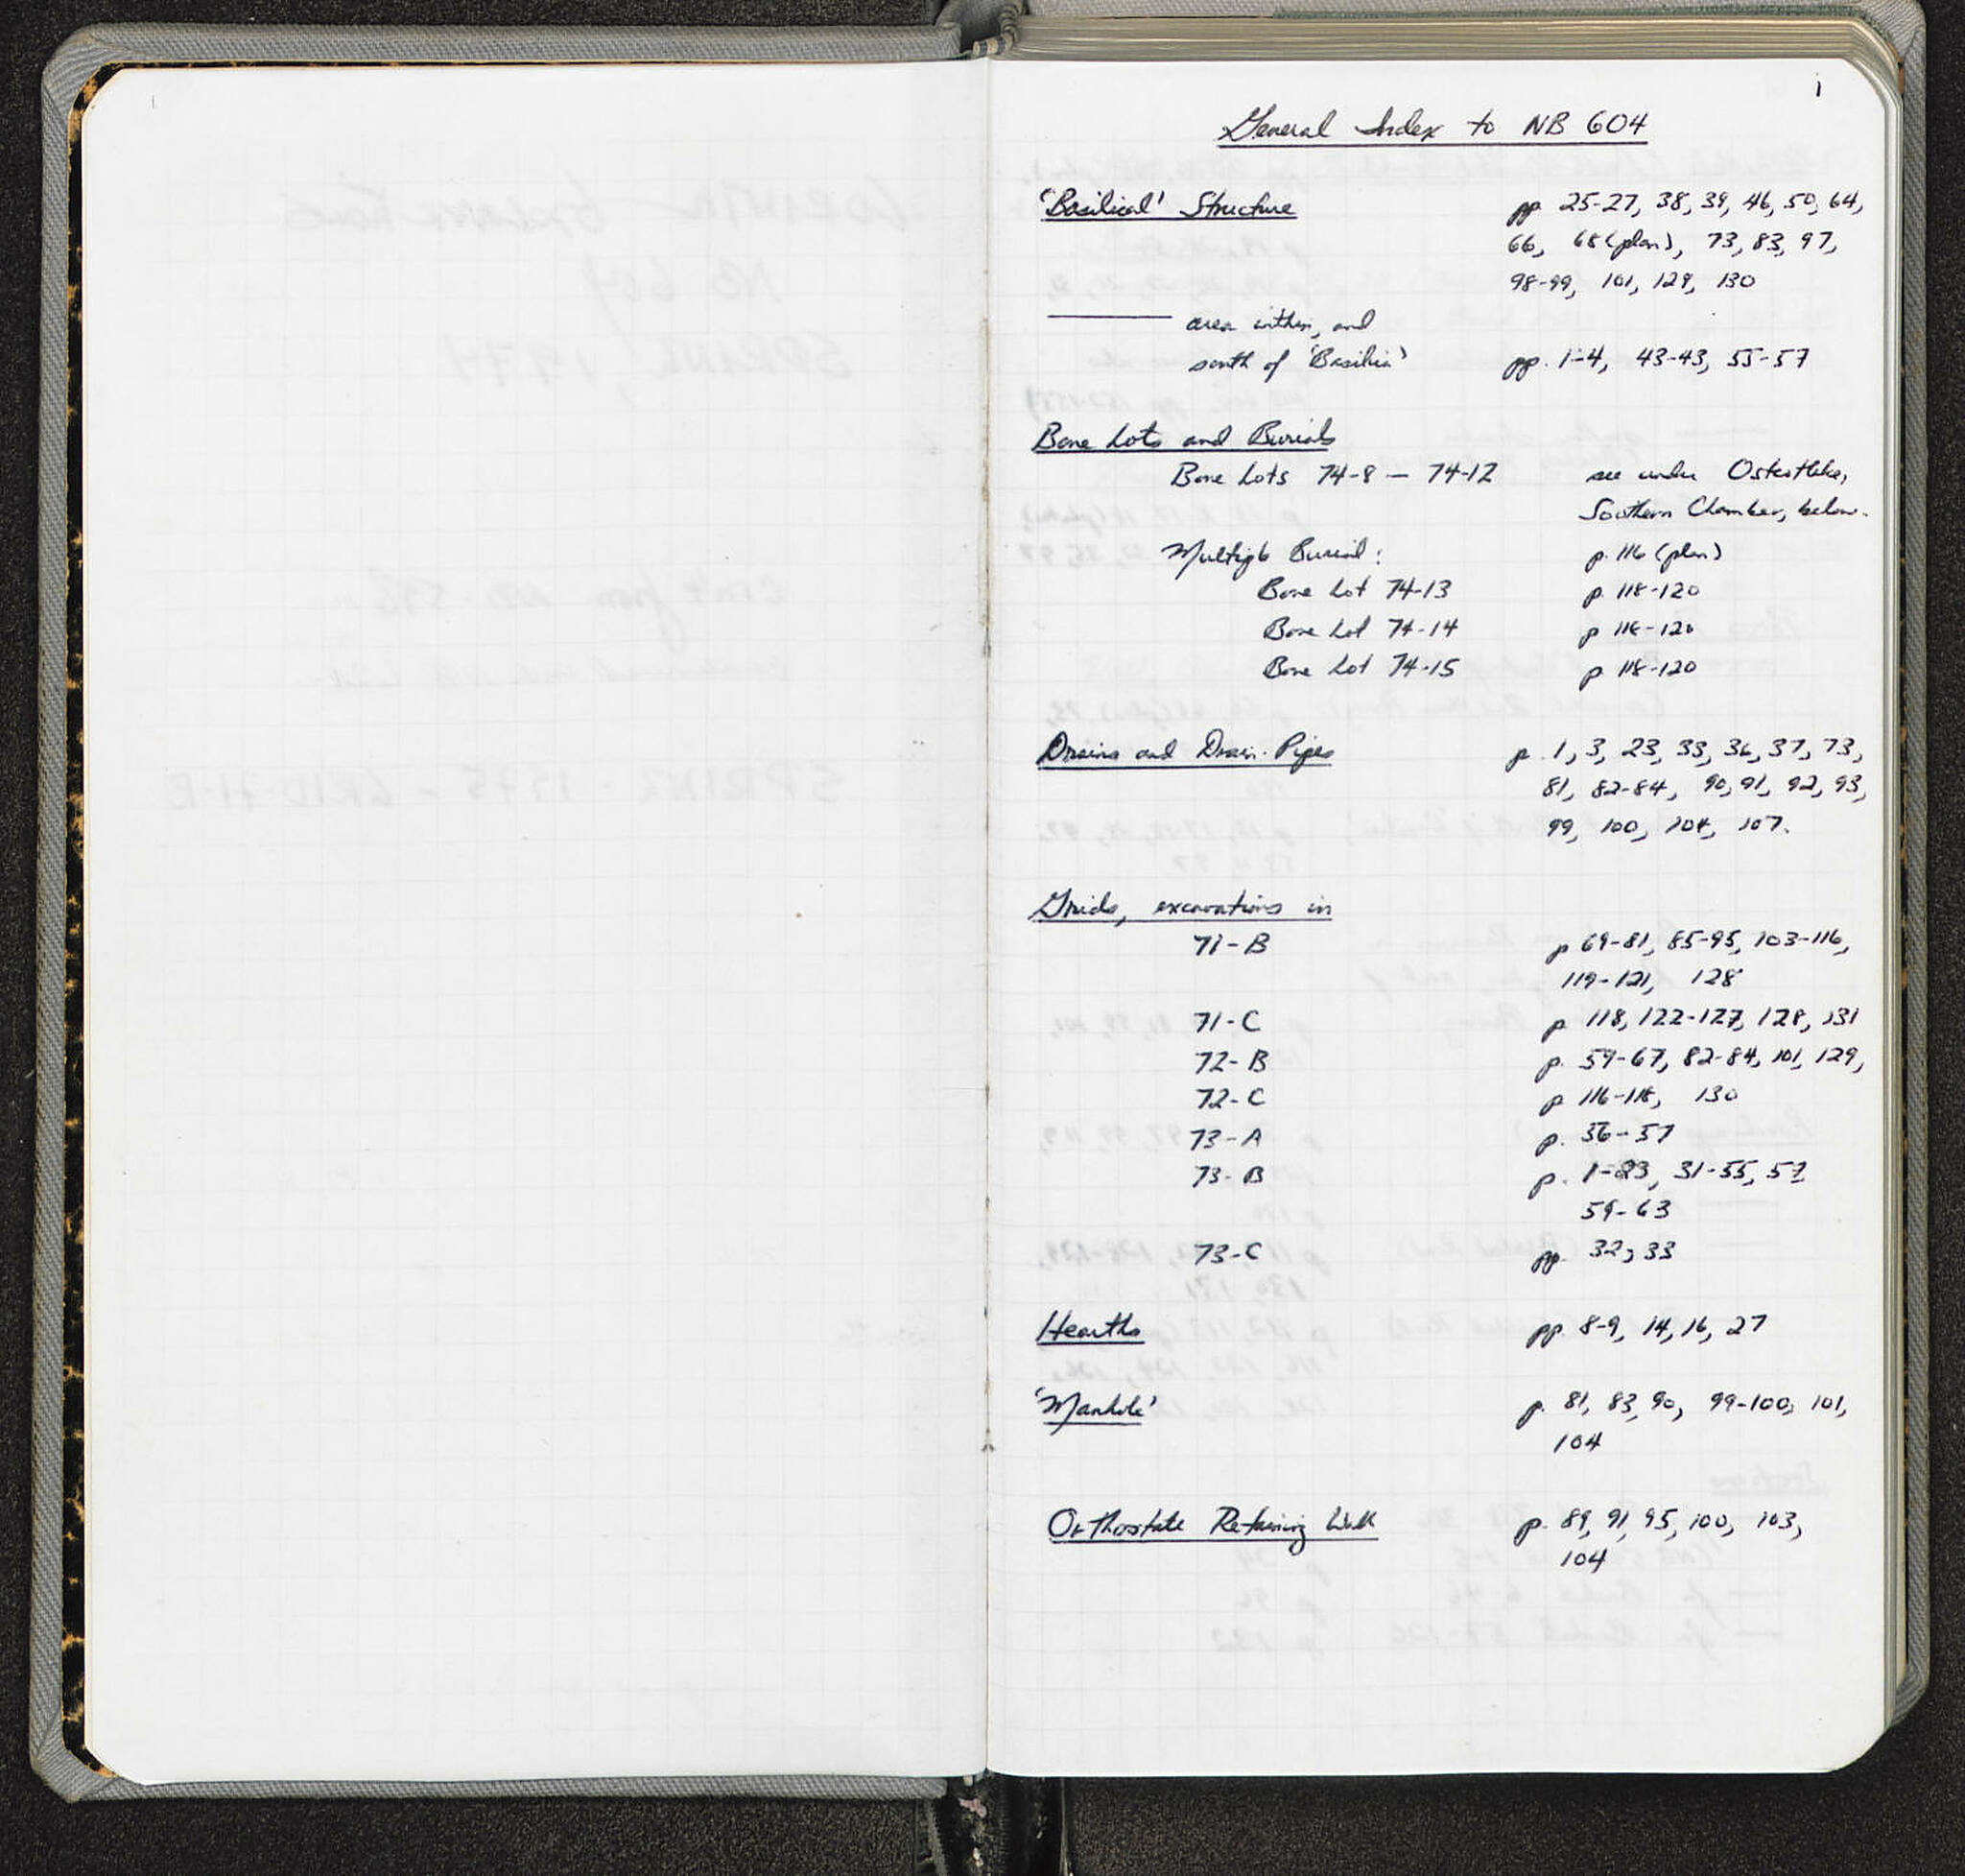 i
General Index to NB 604
'Basilical' Structure pp 25-27, 38, 39, 46, 50, 64,
66, 68 (plan), 73, 83, 97,
98-99, 101, 129, 130
area within, and
south of 'Basilica' pp. 1-4, 43-43, 55-57
Bone Lots and Burials
Bone Lots 74-8 — 74-12 see under Osteotheke,
Southern Chamber, below.
Multiple Burial: p. 116 (plan)
Bone Lot 74-13 p. 118-120
Bone Lot 74-14 p 118-120
Bone Lot 74-15 p. 118-120
Drains and Drain-Pipes p. 1, 3, 23, 33, 36, 37, 73,
81, 82-84, 90, 91, 92, 93,
99, 100, 104, 107.
Grids, excavations in
71-B p 69-81, 85-95, 103-116,
119-121, 128
71-C p. 118, 122-127, 128, 131
72-B p. 59-67, 82-84, 101, 129,
72-C p 116-118, 130
73-A p. 56-57
73-B p. 1-23, 31-55, 57,
59-63
73-C pp. 32, 33
Hearths pp. 8-9, 14, 16, 27
'Manhole' p. 81, 83, 90, 99-100, 101,
104
Orthostate Retaining Wall p. 89, 91, 95, 100, 103,
104